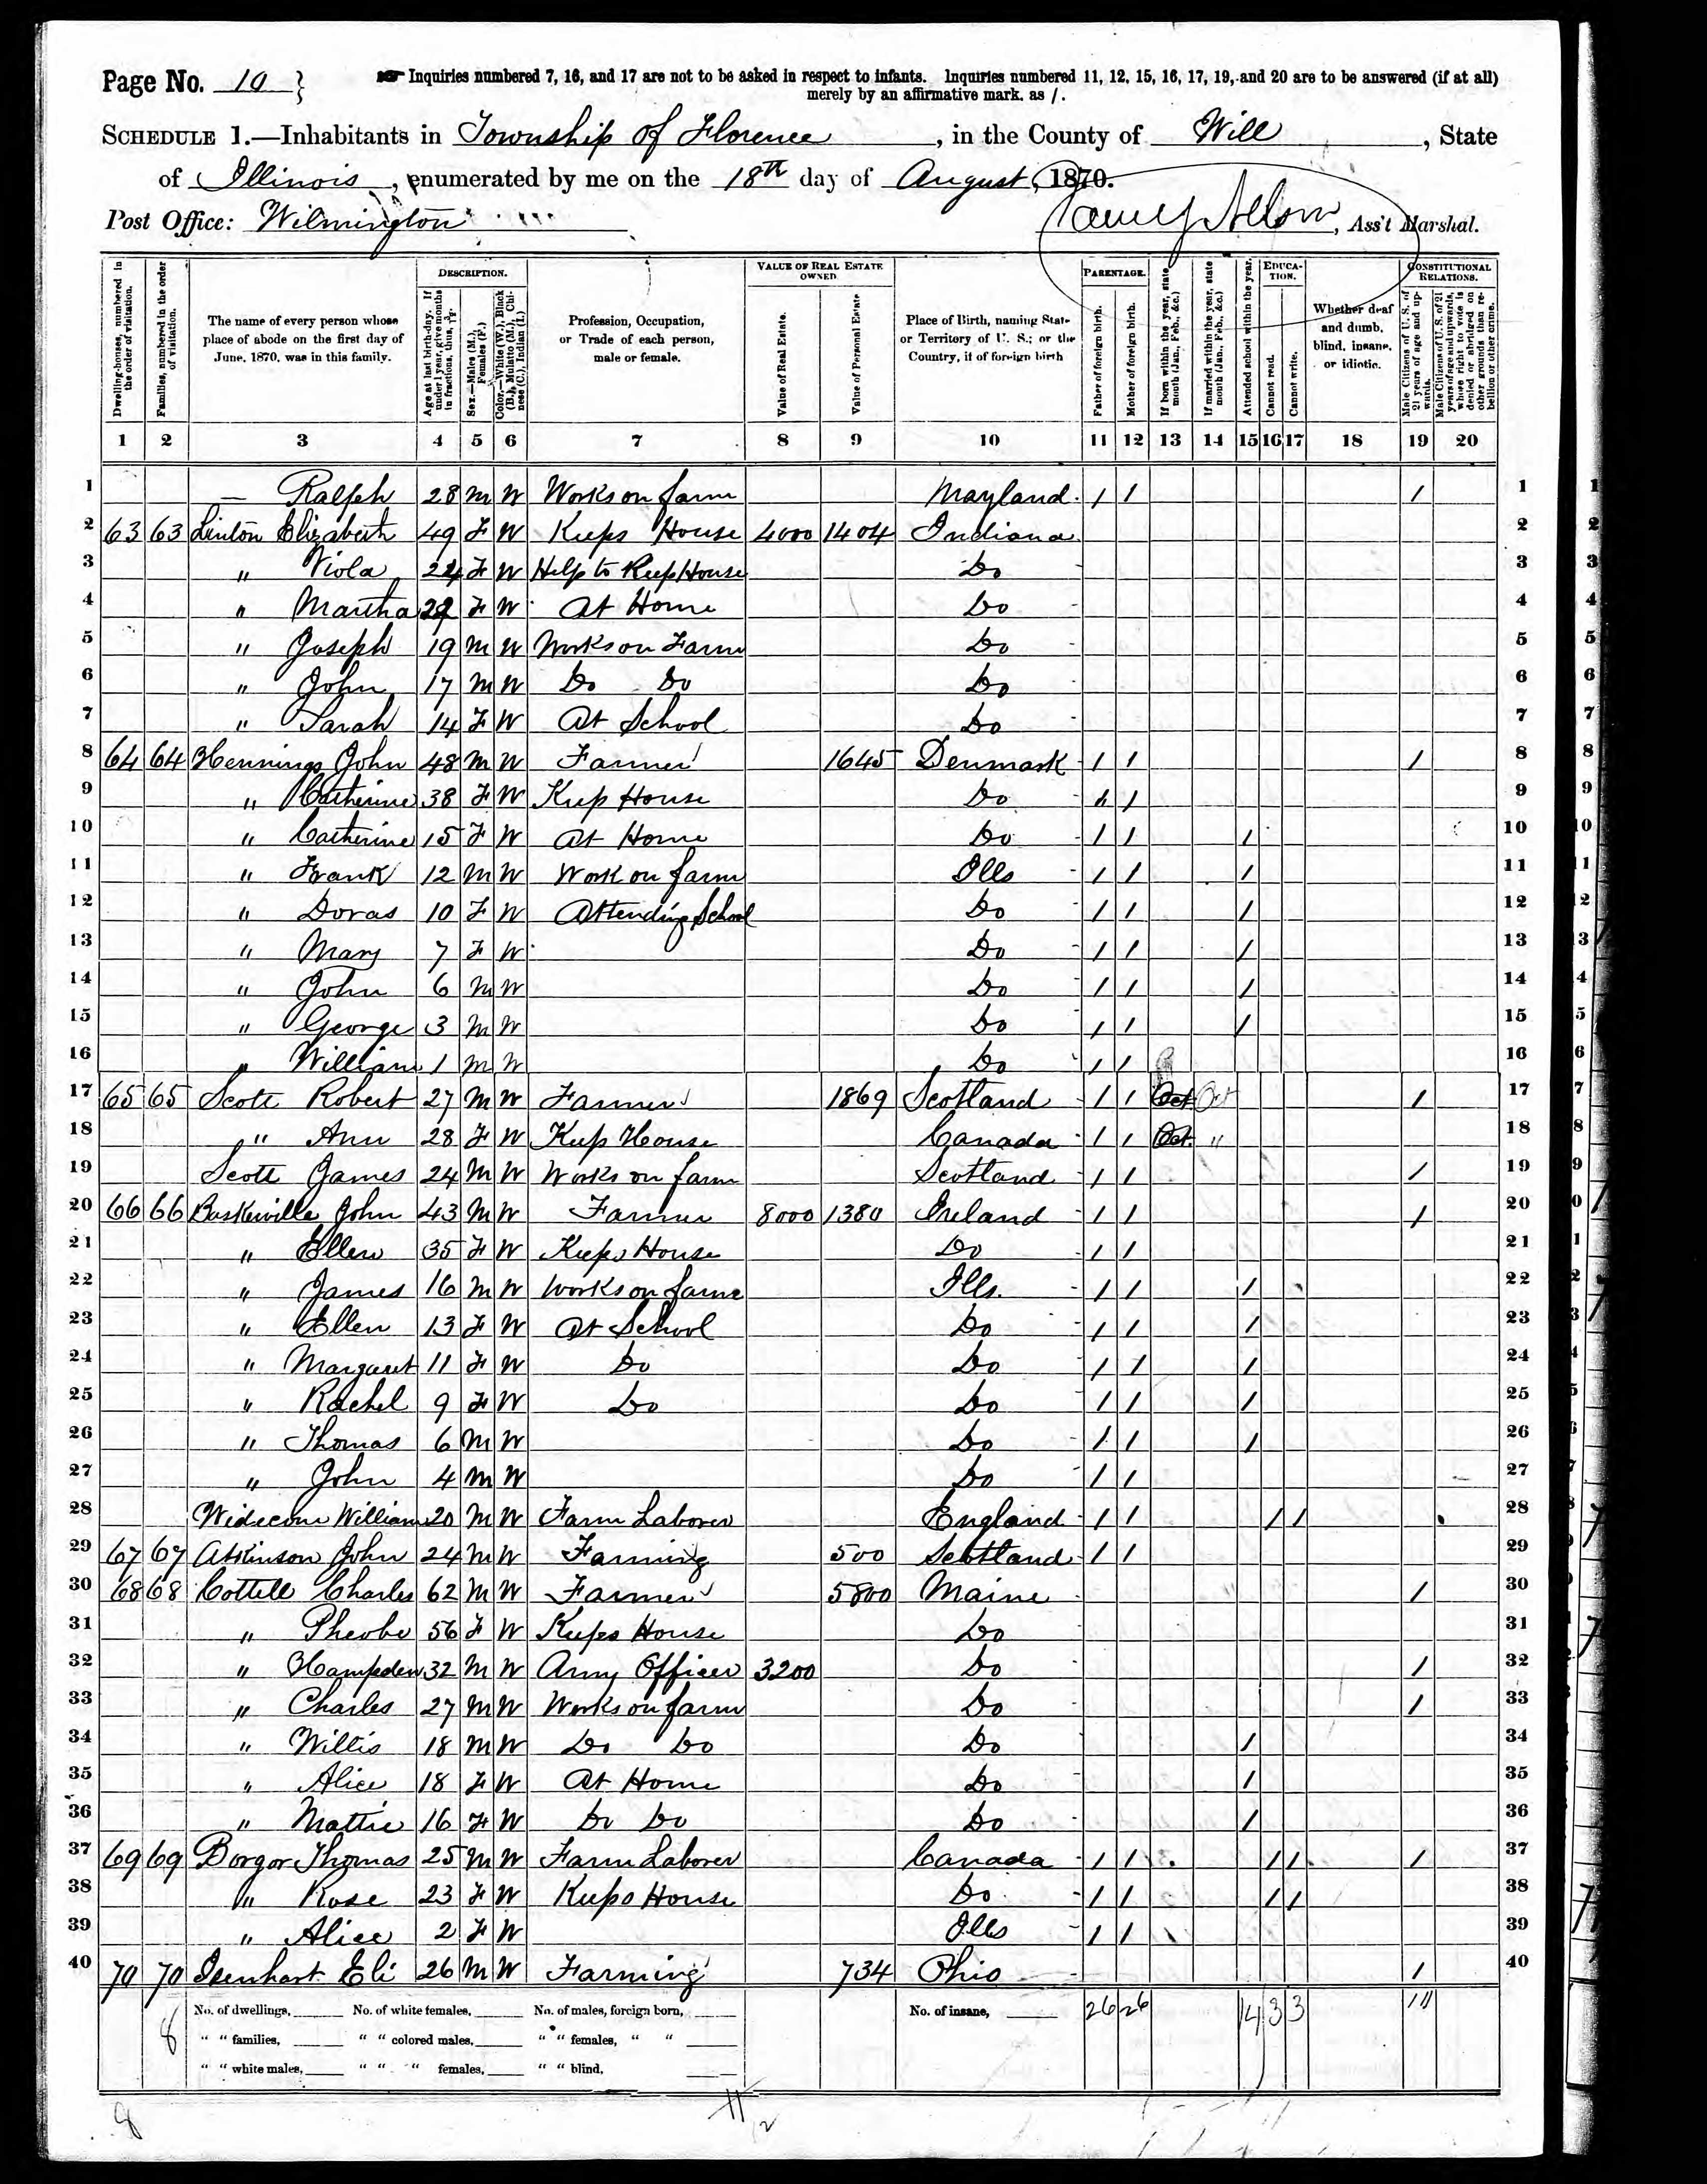 Page No. 10 } Inquiries numbered 7, 16, and 17 are not to be asked in respect to infants. Inquiries numbered 11, 12, 15, 16, 17, 19, and 20 are to be answered (if at all)
merely by an affirmative mark, as /.
SCHEDULE 1.—Inhabitants in Township of Florence, in the County of Will, State
of Illinois, enumerated by me on the 18th day of August, 1870.
Post Office: Wilmington
, Ass't Marshal.
Dwelling-houses, numbered in the order of visitation.
Families, numbered in the order of visitation.
The name of every person whose place of abode on the first day of June, 1870, was in this family.
DESCRIPTION.
Age at last birth-day. If under 1 year, give months in fractions, thus, 3/12.
Sex.—Males (M.), Females (F.)
Color.—White (W.), Black (B.), Mulatto (M.), Chinese (C.), Indian (I.)
Profession, Occupation, or Trade of each person, male or female.
VALUE OF REAL ESTATE OWNED.
Value of Real Estate.
Value of Personal Estate
Place of Birth, naming State or Territory of U. S.; or the Country, if of foreign birth
PARENTAGE.
Father of foreign birth.
Mother of foreign birth.
If born within the year, state month (Jan., Feb., &c.)
If married within the year, state month (Jan., Feb., &c.)
Attended school within the year.
EDUCATION.
Cannot read.
Cannot write.
Whether deaf and dumb, blind, insane, or idiotic.
CONSTITUTIONAL RELATIONS.
Male Citizens of U. S. of 21 years of age and upwards.
Male Citizens of U. S. of 21 years of age and upwards, whose right to vote is denied or abridged on other grounds than rebellion or other crime.
1 2 3 4 5 6 7 8 9 10 11 12 13 14 15 16 17 18 19 20
1 — Ralph 28 M W Works on farm Mayland / / / 1
2 63 63 Linton Elizabeth 49 F W Keeps House 4000 1404 Indiana 2
3 " Viola 24 F W Help to Keep House Do 3
4 " Martha F W At Home Do 4
5 " Joseph 19 M W Works on Farm Do 5
6 " John 17 M W Do Do Do 6
7 " Sarah 14 F W At School Do 7
8 64 64 Hennings John 48 M W Farmer 1645 Denmark / / / 8
9 " Catherine 38 F W Keep House Do / / 9
10 " Catherine 15 F W At Home Do / / / 10
11 " Frank 12 M W Work on farm Ills / / / 11
12 " Doras 10 F W Attending School Do / / / 12
13 " Mary 7 F W Do / / / 13
14 " John 6 M W Do / / / 14
15 " George 3 M W Do / / / 15
16 " William 1 M W Do / / 16
17 65 65 Scott Robert 27 M W Farmer 1869 Scotland / / Oct Oct / 17
18 " Ann 28 F W Keep House Canada / / Oct. " 18
19 Scott James 24 M W Works on farm Scotland / / / 19
20 66 66 Baskerville John 43 M W Farmer 8000 1380 Ireland / / / 20
21 " Ellen 35 F W Keeps House Do / / 21
22 " James 16 M W Works on farm Ills. / / / 22
23 " Ellen 13 F W At School Do / / / 23
24 " Margaret 11 F W Do Do / / / 24
25 " Rachel 9 F W Do Do / / / 25
26 " Thomas 6 M W Do / / / 26
27 " John 4 M W Do / / 27
28 Widecom William 20 M W Farm Laborer England / / / / 28
29 67 67 Atkinson John 24 M W Farming 500 Scotland / / 29
30 68 68 Cottell Charles 62 M W Farmer 5800 Maine / 30
31 " Pheobe 56 F W Keeps House Do 31
32 " Hampden 32 M W Army Officer 3200 Do / 32
33 " Charles 27 M W Works on farm Do / 33
34 " Willis 18 M W Do Do Do / 34
35 " Alice 18 F W At Home Do / 35
36 " Mattie 16 F W Do Do Do / 36
37 69 69 Borgor Thomas 25 M W Farm Laborer Canada / / / / / 37
38 " Rose 23 F W Keeps House Do / / / / 38
39 " Alice 2 F W Ills / / 39
40 70 70 Isenhart Eli 26 M W Farming 734 Ohio / 40
No. of dwellings, No. of white females, No. of males, foreign born, No. of insane, 26 26 14 3 3 11
8 " " families, " " colored males, " " females, " "
" " white males, " " " females, " " blind,
8